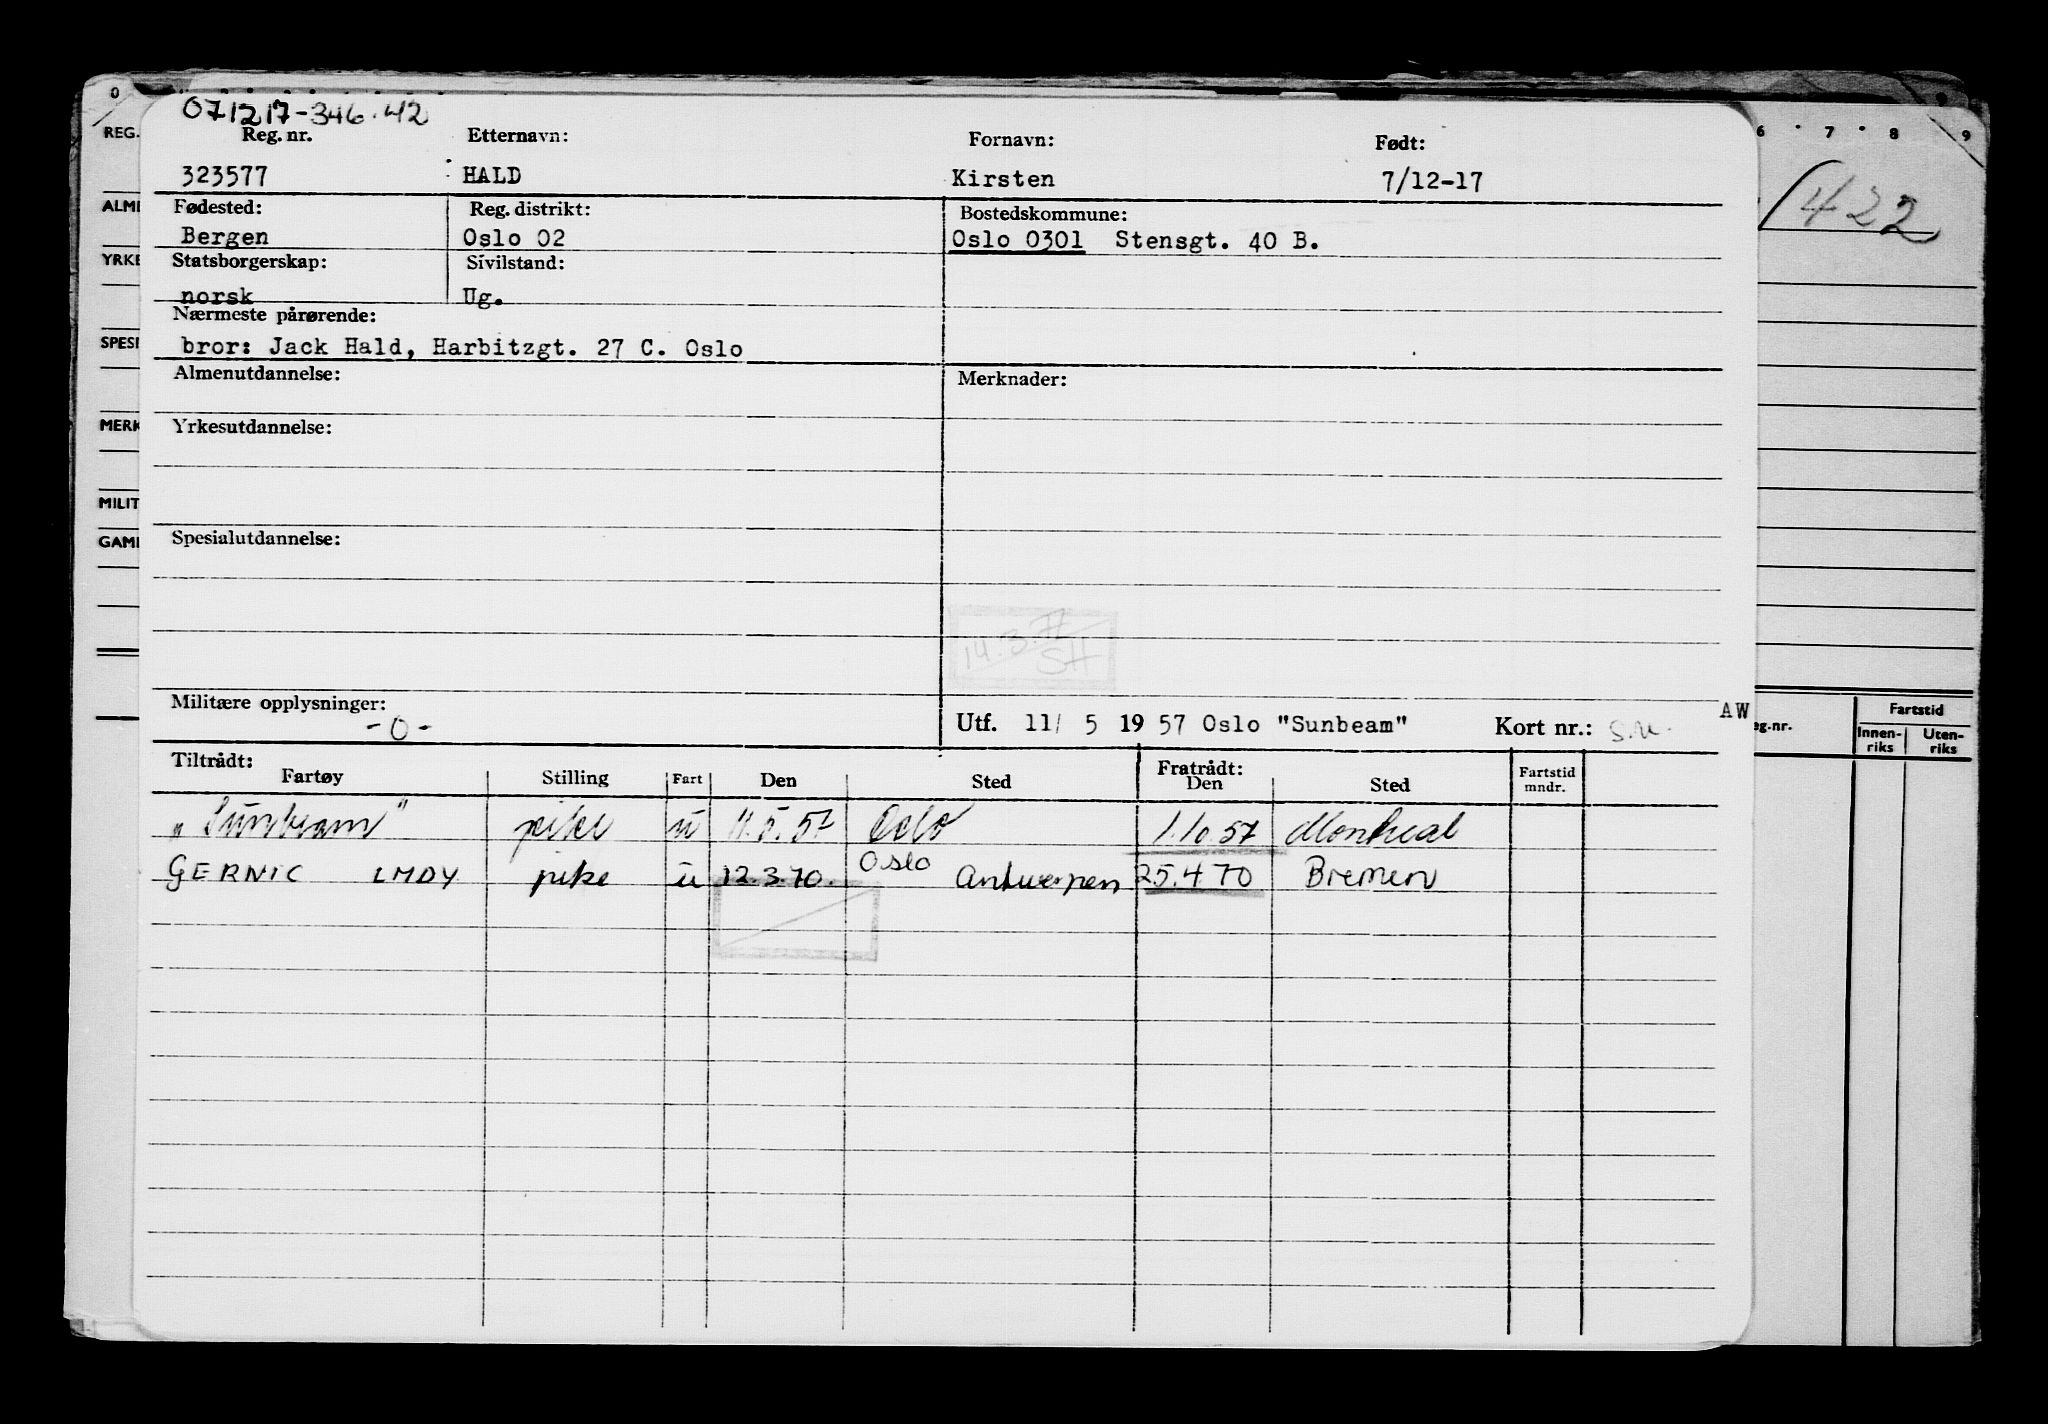 071217-346.42
Reg. nr. Etternavn: Fornavn: Født:
323577 HALD Kirsten 7/12-17
Fødested: Reg. distrikt: Bostedskommune:
Bergen Oslo 02 Oslo 0301 Stensgt. 40 B.
Statsborgerskap: Sivilstand:
norsk Ug.
Nærmeste pårørende:
bror: Jack Hald, Harbitzgt. 27 C. Oslo
Almenutdannelse: Merknader:
Yrkesutdannelse:
Spesialutdannelse:
14.3.71
SH
Militære opplysninger:
-0-
Utf. 11/ 5 19 57 Oslo "Sunbeam" Kort nr.:
AW
Tiltrådt: Fratrådt:
Fartøy Stilling Fart Den Sted Den Sted Fartstid mndr.
"Sunbeam" pike u 11.5.57 Oslo 1.10.57 Montreal
GERNIC LMDY pike u 12.3.70. Oslo Antwerpen 25.4 70 Bremen
0
REG.
ALM
YRKE
SPESI
MERK
MILIT
GAM
6 7 8 9
1422
eg.nr.
Fartstid
Innen-riks Uten-riks